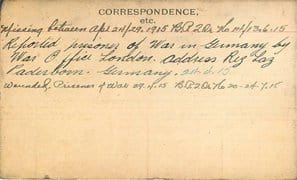 CORRESPONDENCE,
etc.
Missing between Apr 24/29. 1915 B.P.2.De No 114/13.6.15
Reported prisoner of War in Germany by
War Office London. address Rez Laz
Paderborn. Germany. 24.6.15.
Wounded, Prisoner of War 29.4.15 B.P.2.De No 20-24.7.15